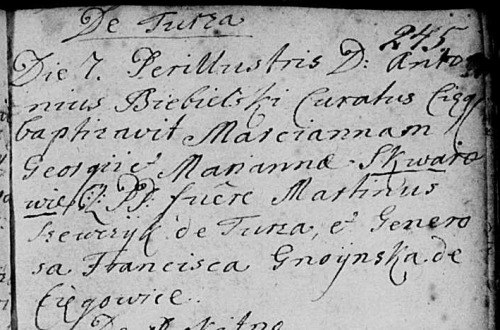 De Turza
245
Die 7. Perillustris D: Anto
nius Biebielski Curatus Cięg
baptizavit Marciannam
Georgii et Mariannæ Skwaro
wie F: PP: fuêre Martinus
Szewczyk de Turza, et Genero
sa Francisca Gnoÿnska de
Cięgowice.
De